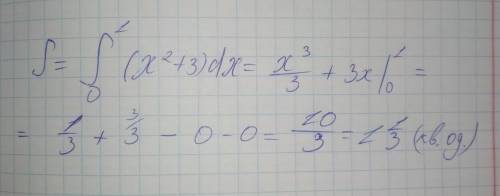 S = ∫₀¹ (x² + 3) dx = x³/3 + 3x |₀¹ =
= 1/3 + 3/3 − 0 − 0 = 10/3 = 1 1/3 (кв. од.)